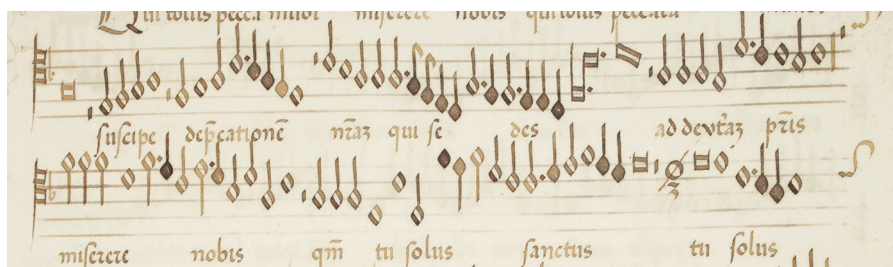 Qui tollis pecca mundi miserere nobis qui tollis peccata
suscipe dep̄catione̅ nr̄az qui se des ad dext̄az pr̄is
miserere nobis qm̄ tu solus sanctus tu solus